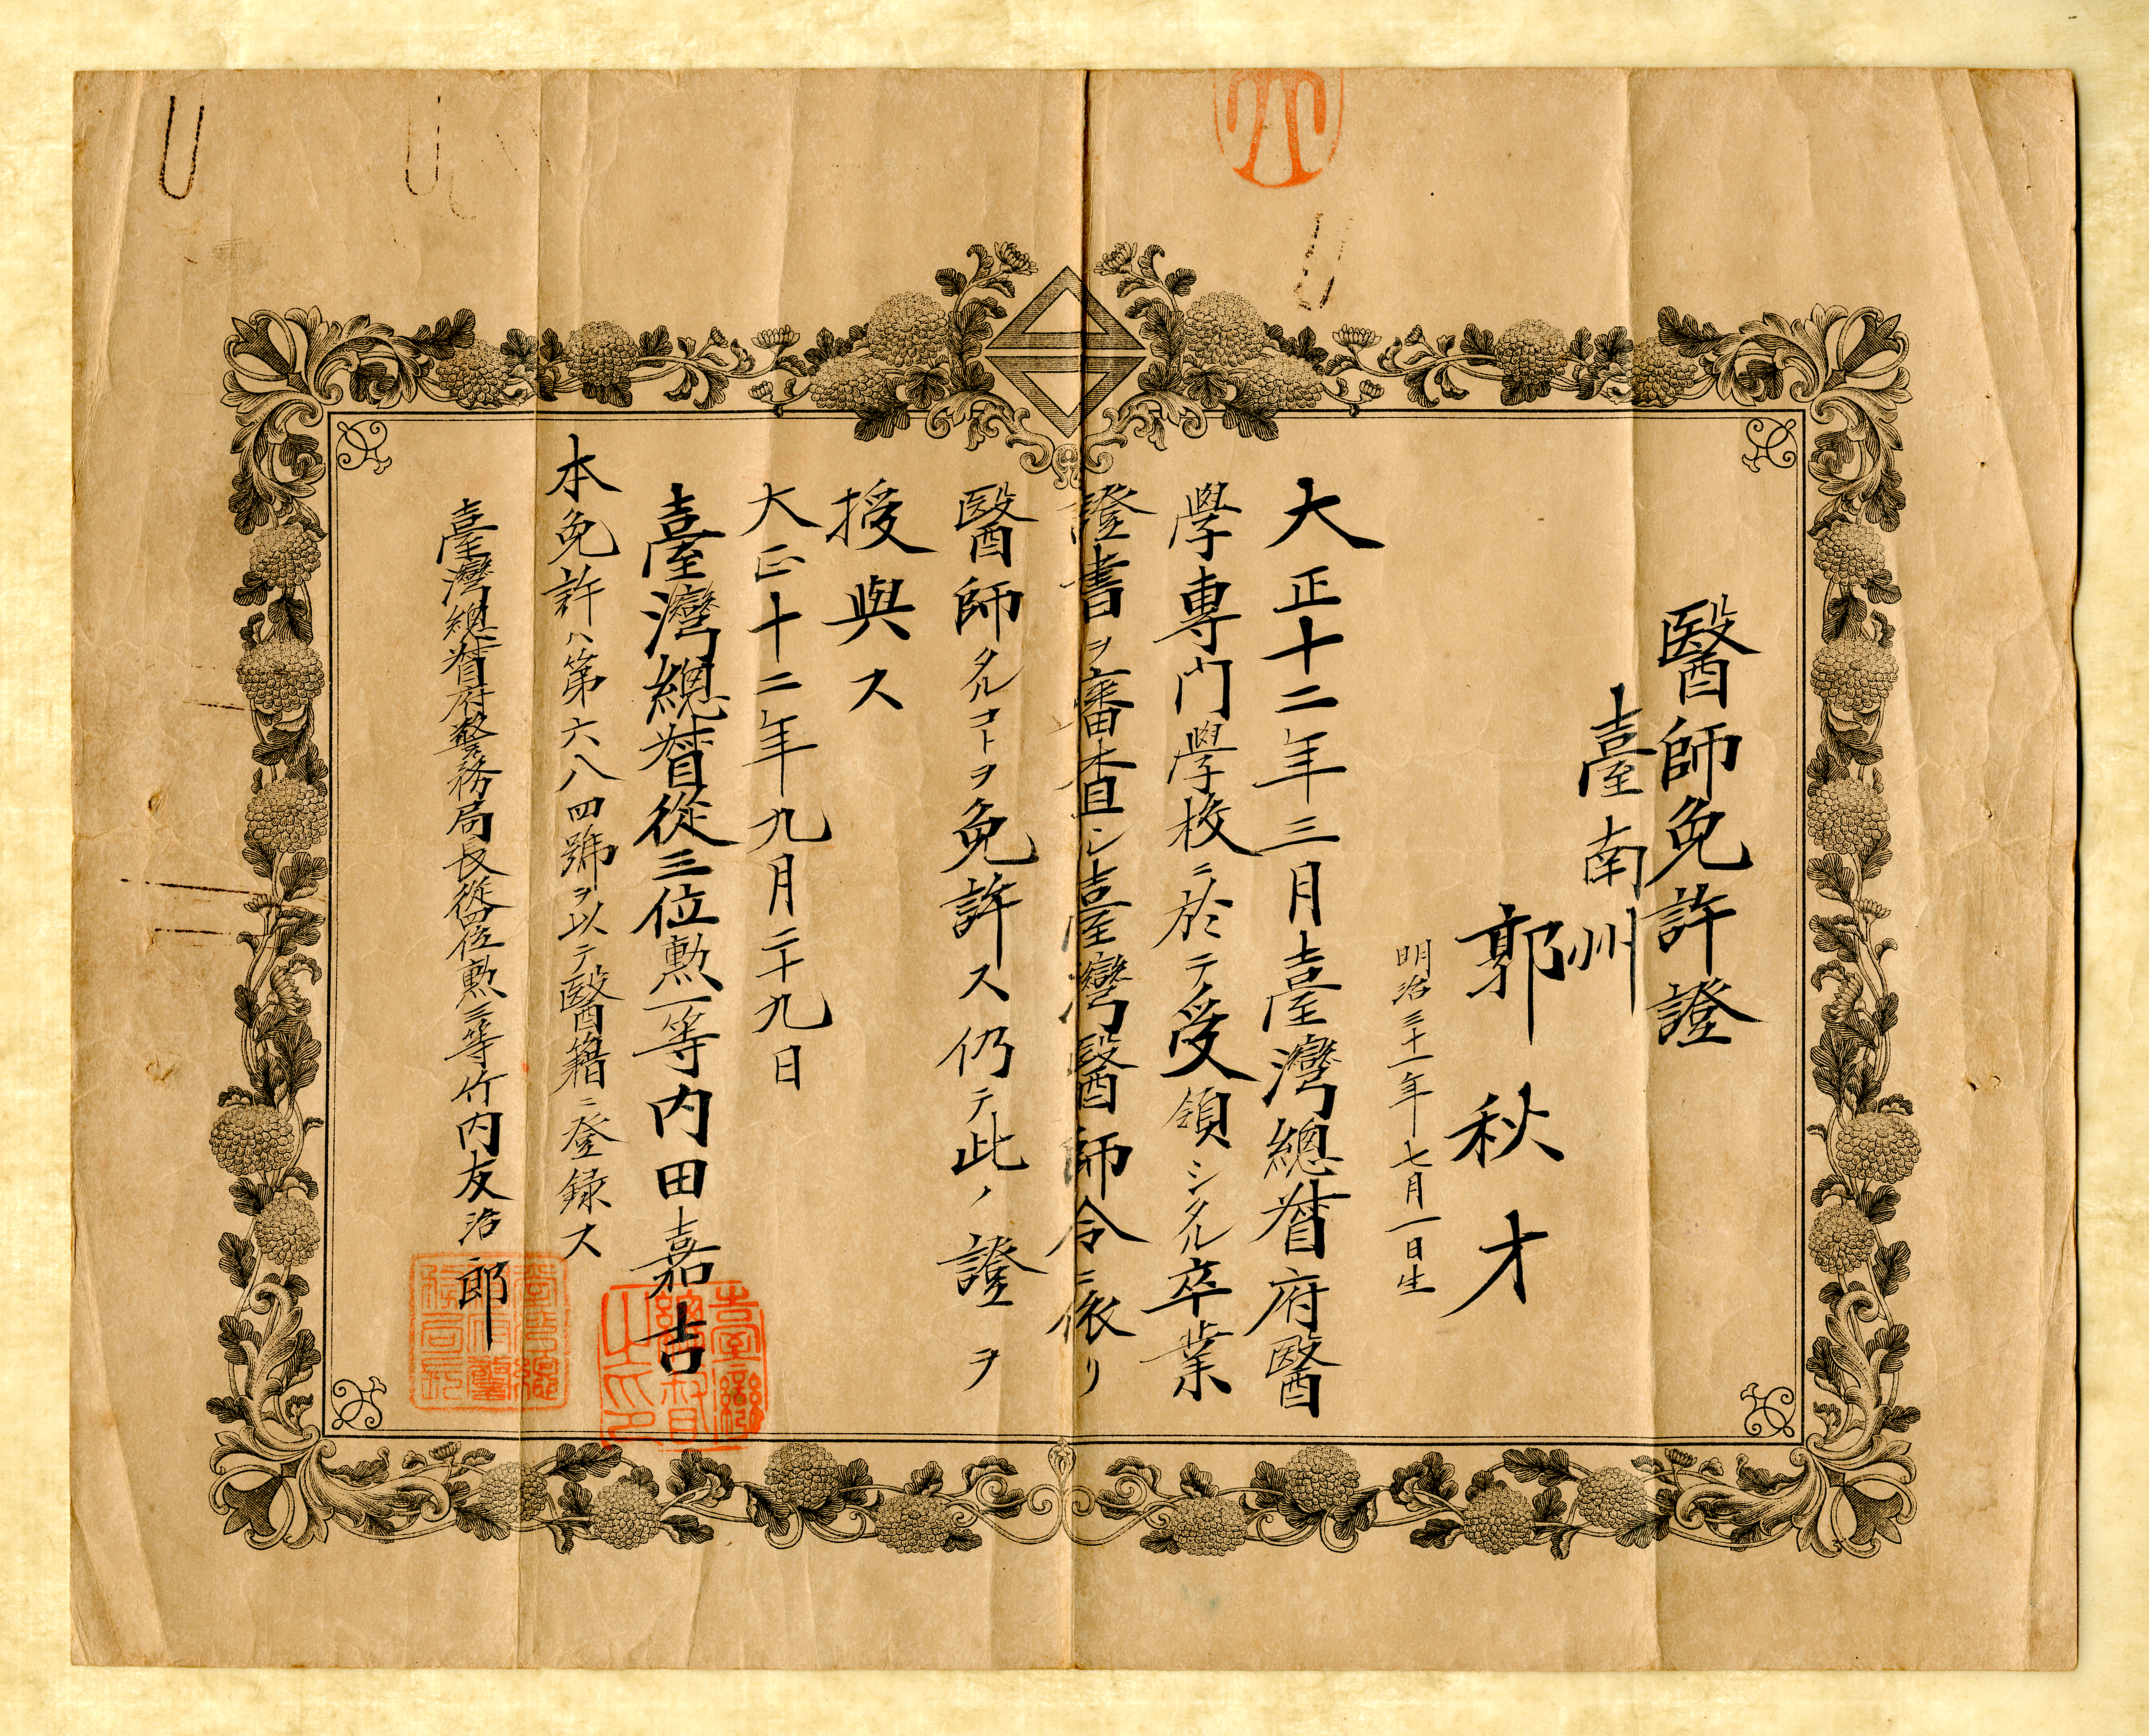 醫師免許證
臺南州
郭秋才
明治三十一年七月一日生
大正十二年三月臺灣總督府醫
學專門學校ニ於テ受領シタル卒業
證書ヲ審查シ臺灣醫師令ニ依リ
醫師タルコトヲ免許ス仍テ此ノ證ヲ
授與ス
大正十二年九月二十九日
臺灣總督從三位勲一等內田嘉吉
臺灣總督之印
本免許ハ第六八四號ヲ以テ醫籍ニ登録ス
臺灣總督府警務局長從四位勲三等竹內友治郎